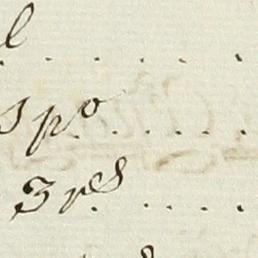 l . . . . .
s po . . . . .
3 rs . . . . .